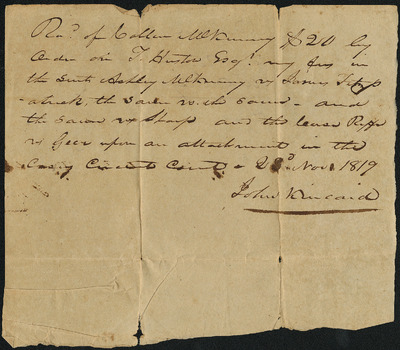 Recd. of Collin McKinney $20 by
order on T. Huston Esqr. my fees in
the suits Ashley McKinney vs James
the same vs the same - and
the same vs Sharp and the
vs Geer upon an attachment in the
Casey Circuit Court 2d Nov. 1819
John Kincaid